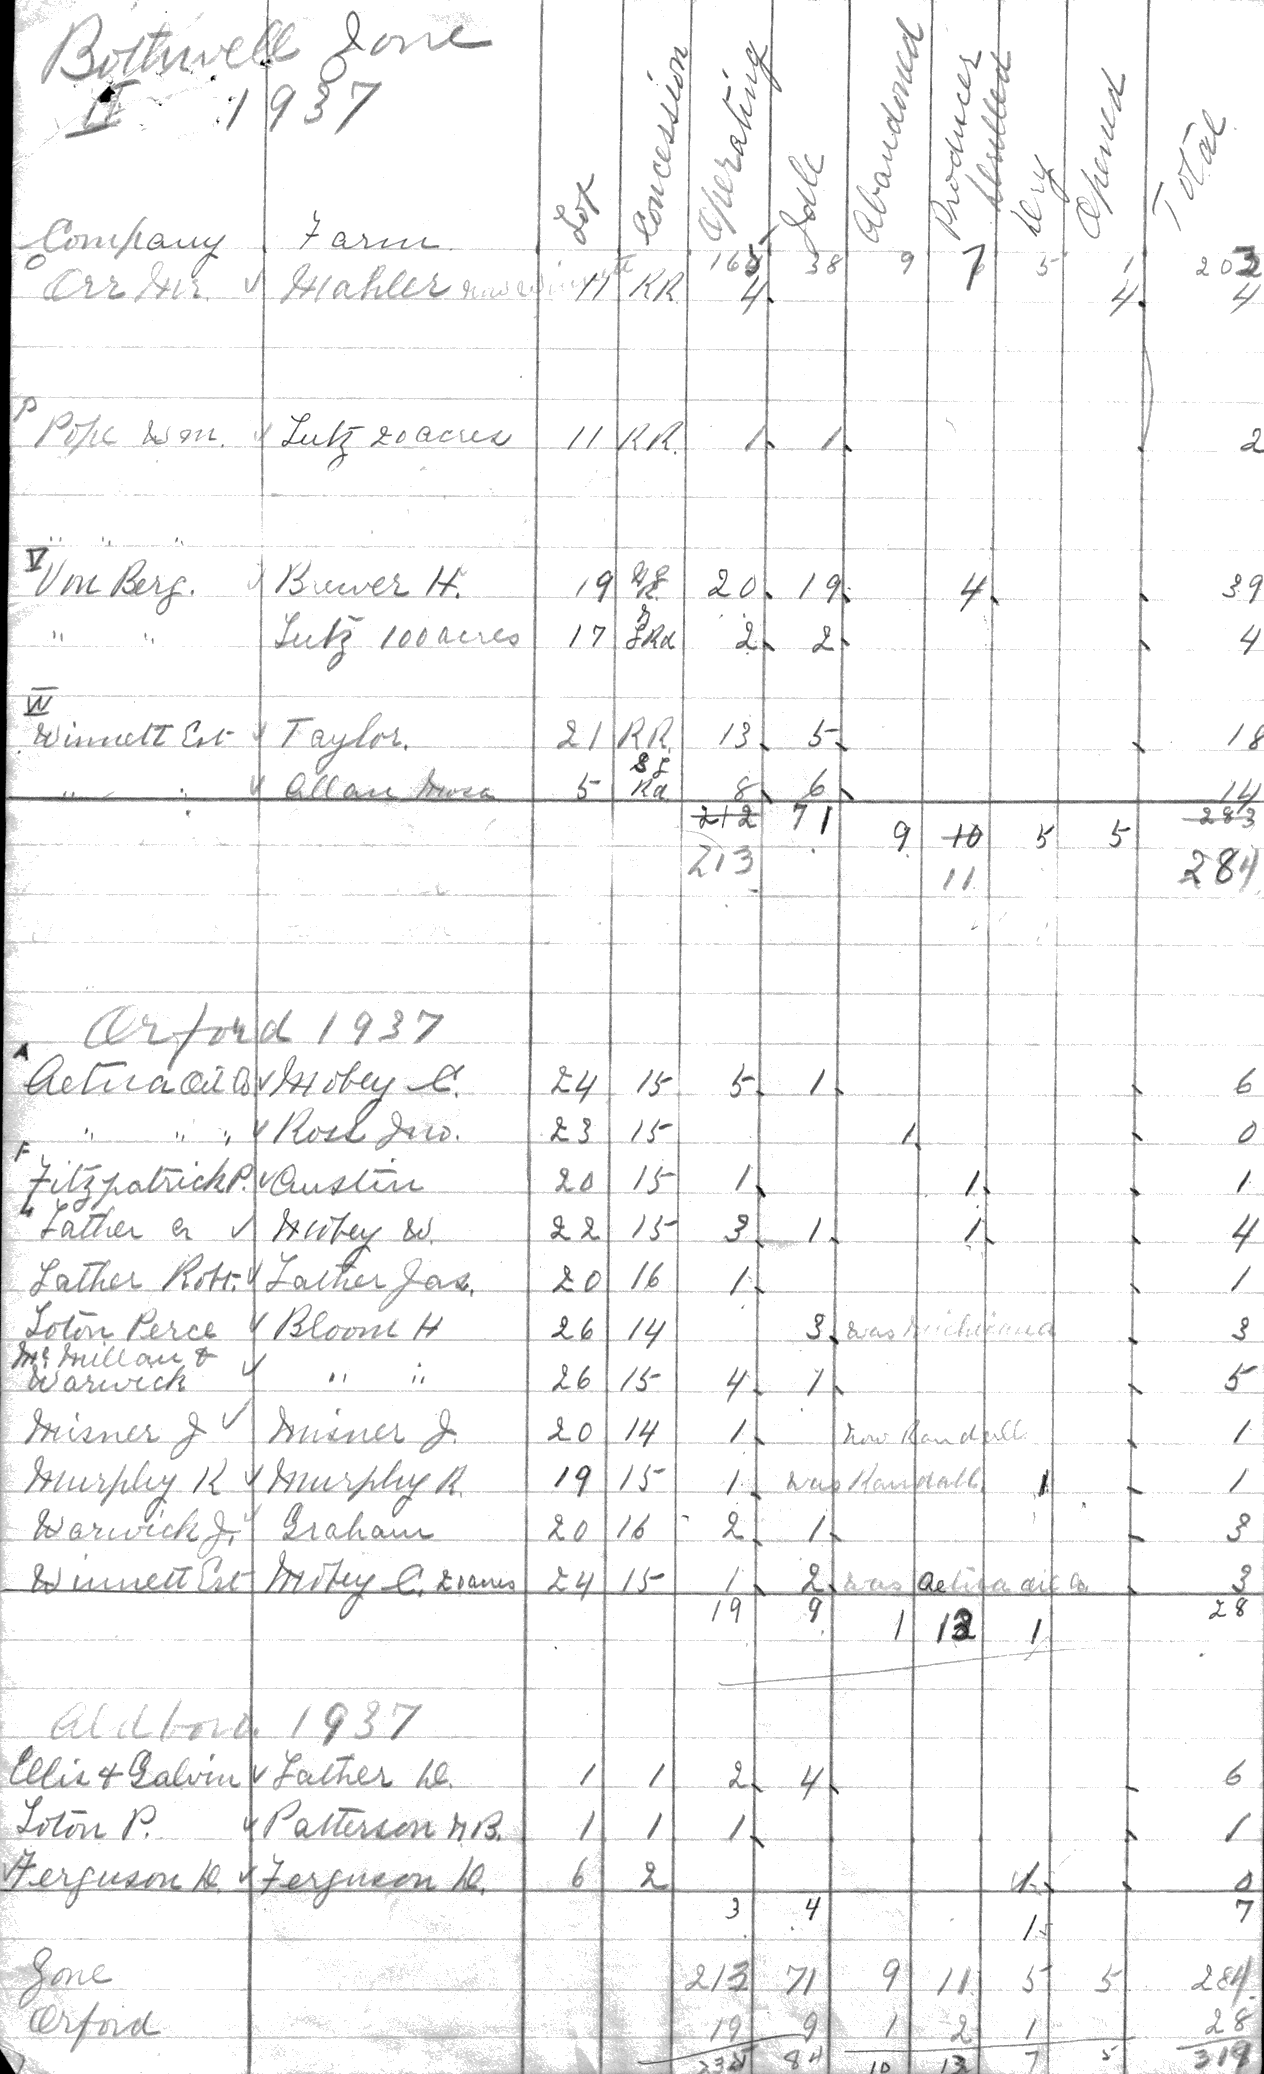 Bothwell Zone
II 1937
Company Farm Lot Concession Operating Idle Abandoned Producer Drilled Dry Opened Total
165 38 9 7 5 1 203
O
Orr Mr. ✓ Mahler 11 RR 4 4 4
P
Pope Wm. ✓ Lutz 20 acres 11 RR. 1 1 2
" " "
V
Von Berg. ✓ Brewer H. 19 20 19 4 39
" " Lutz 100 acres 17 Rd 2 2 4
W
Winnett Est ✓ Taylor. 21 RR. 13 5 18
" " ✓ Allan Mosa 5 Rd 8 6 14
212 71 9 10 5 5 283
213 11 284
Orford 1937
A
Aetna Oil Co ✓ Mobey C. 24 15 5 1 6
" " " ✓ Ross Jno. 23 15 1 0
F
Fitzpatrick P. ✓ Austin 20 15 1 1 1
L
Lather A ✓ Mobey W. 22 15 3 1 1 4
Lather Robt. ✓ Lather Jas. 20 16 1 1
Loton Perce ✓ Bloom H 26 14 3 was 3
McMillan &
Warwick ✓ " " 26 15 4 1 5
Misner J ✓ Misner J. 20 14 1 now Randall 1
Murphy R ✓ Murphy R. 19 15 1 was Randall 1 1
Warwick J. ✓ Graham 20 16 2 1 3
Winnett Est Mobey C. 20 acres 24 15 1 2 was Aetna Oil Co 3
19 9 1 12 1 28
Aldboro 1937
Ellis & Galvin ✓ Lather D. 1 1 2 4 6
Loton P. ✓ Patterson N.B. 1 1 1 1
Ferguson D. ✓ Ferguson D. 6 2 1 0
3 4 1 7
Zone 213 71 9 11 5 5 284
Orford 19 9 1 2 1 28
235 84 10 13 7 5 319